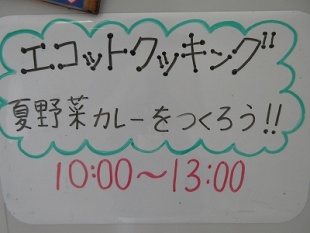 エコットクッキング!!
夏野菜カレーをつくろう!!
10:00～13:00